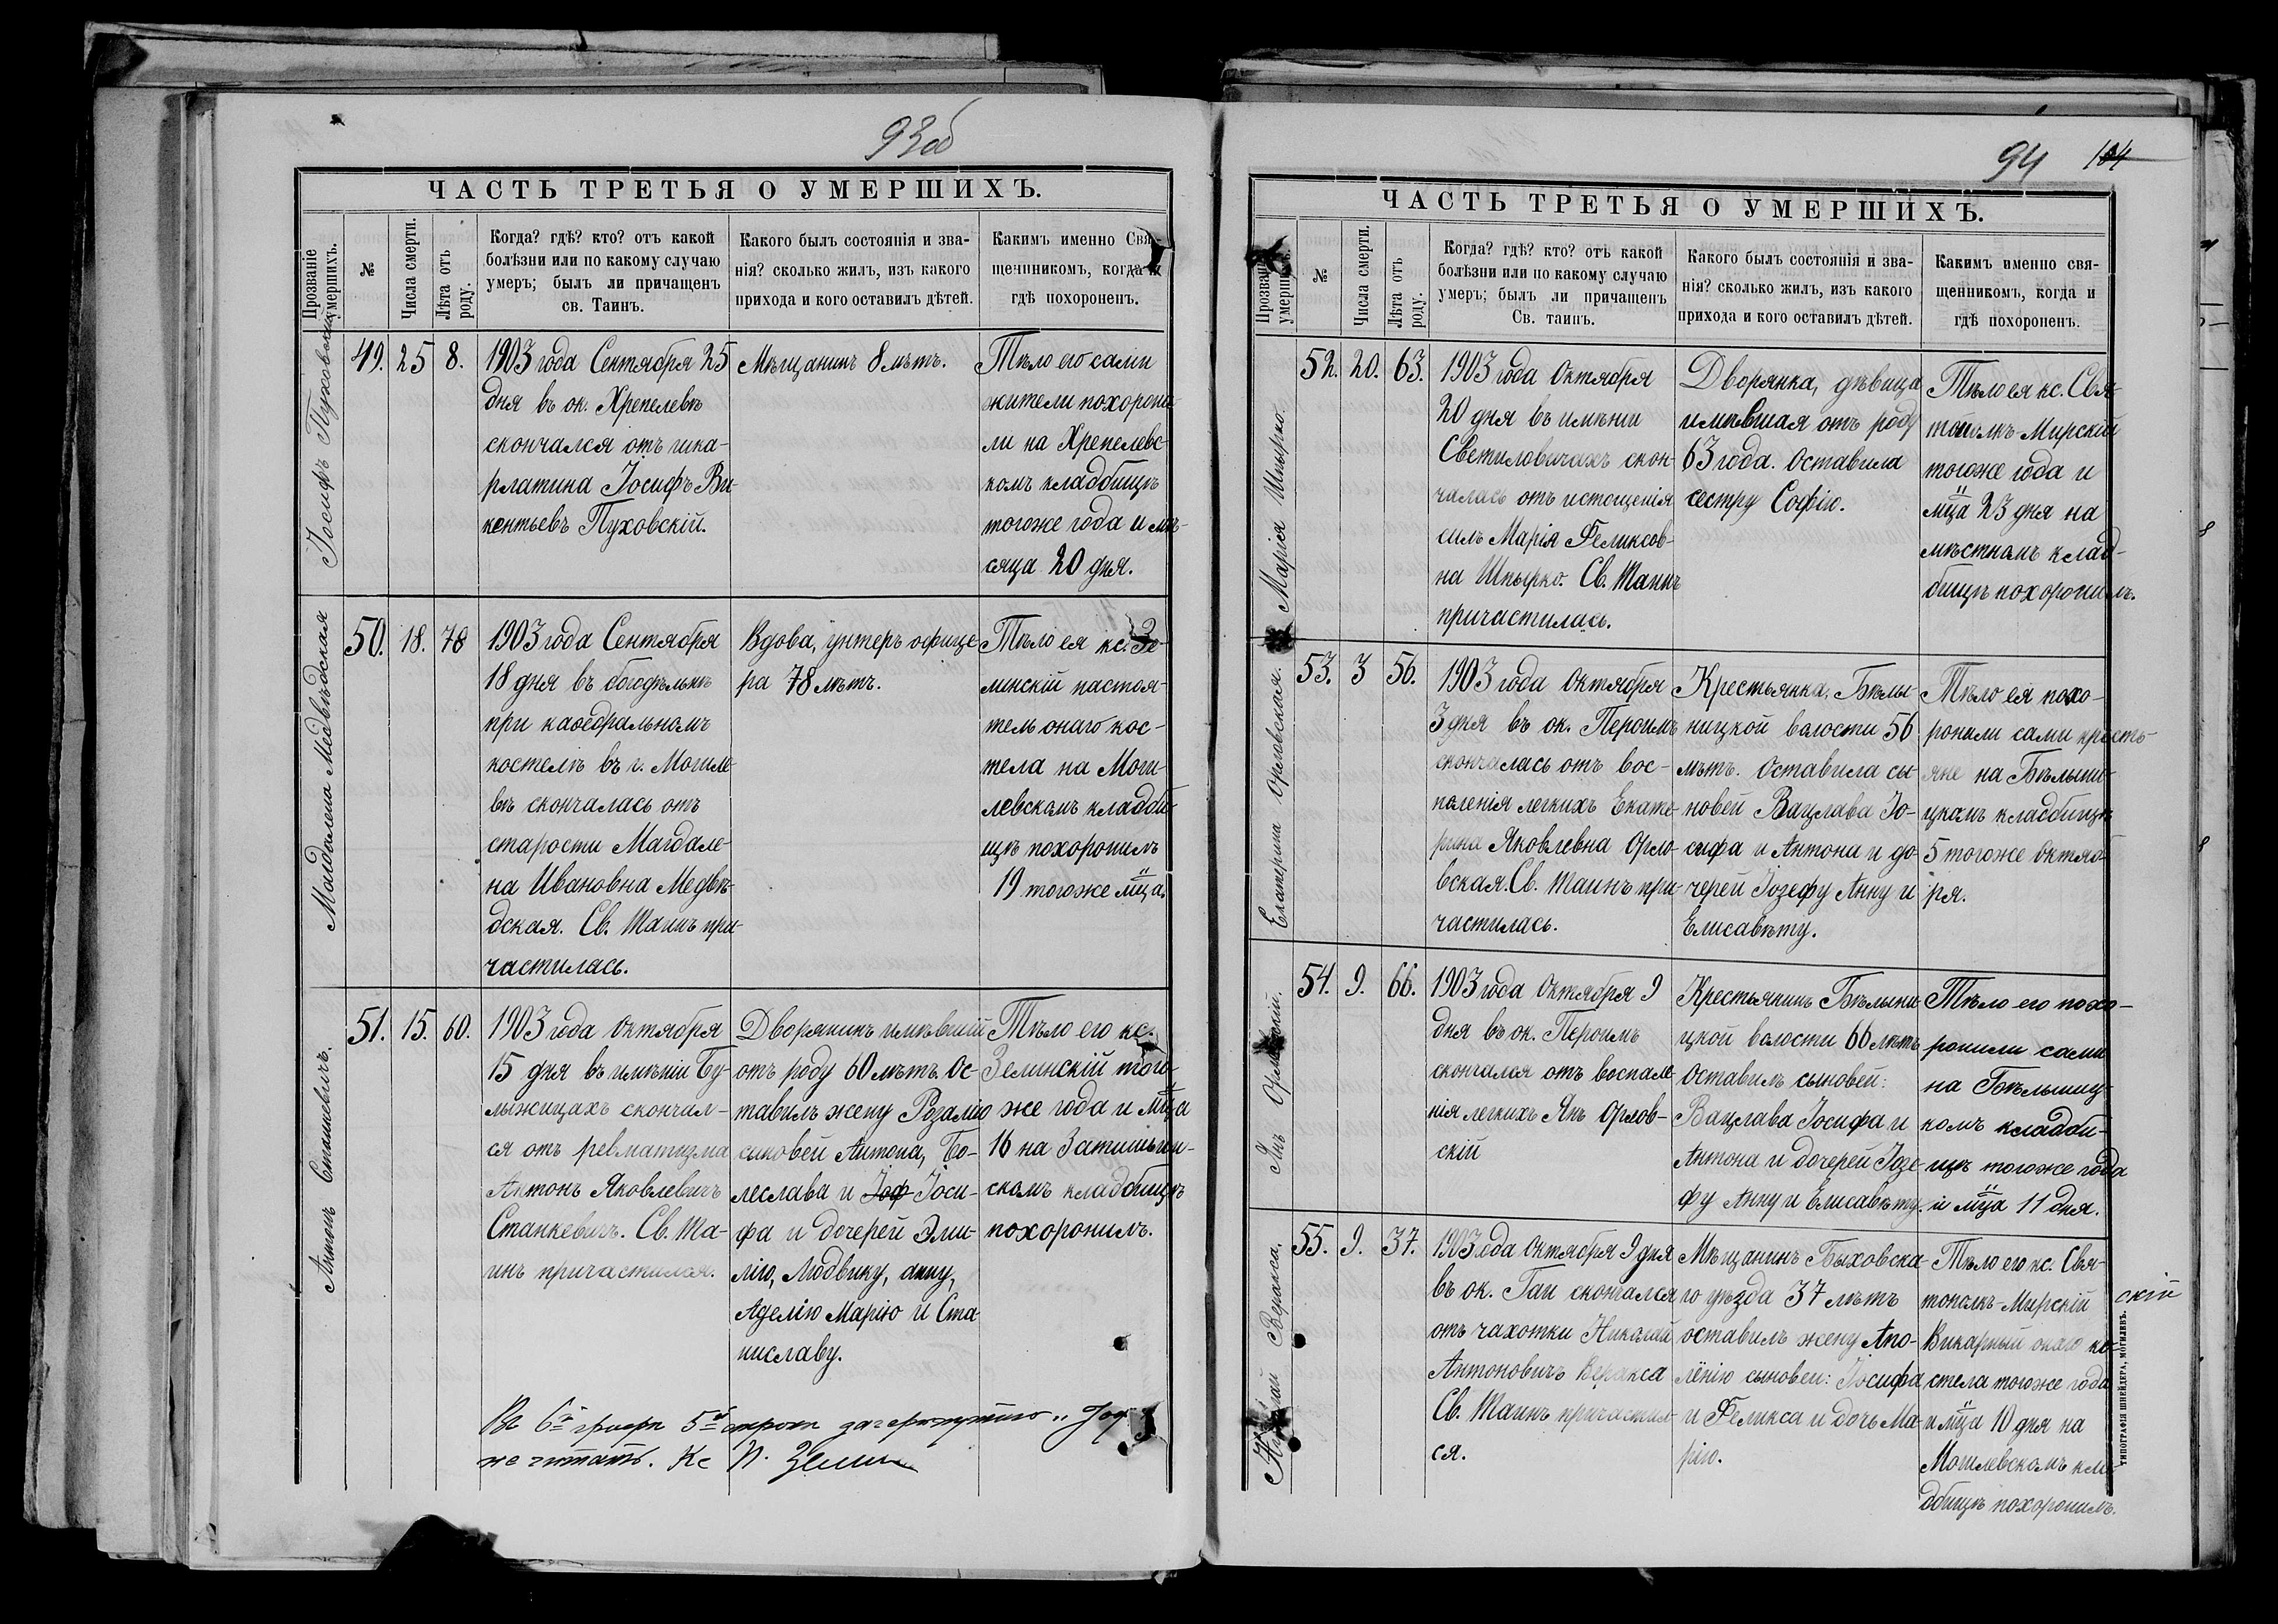 93об
ЧАСТЬ ТРЕТЬЯ О УМЕРШИХЪ.
Прозваніе умершихъ.
№
Числа смерти.
Лѣта отъ роду.
Когда? гдѣ? кто? отъ какой
болѣзни или по какому случаю
умеръ; былъ ли причащенъ
св. Таинъ.
Какого былъ состоянія и зва-
нія? сколько жилъ, изъ какого
прихода и кого оставилъ дѣтей.
Какимъ именно Свя-
щенникомъ, когда и
гдѣ похороненъ.
Іосифъ Пуховскій
49.
25
8.
1903 года Сентября 25
дня въ ок. Хрепелевѣ
скончался отъ шка-
рлатина Іосифъ Ви
кентьевъ Пуховскій.
Мѣщанинъ 8 лѣтъ.
Тѣло его сами
жители похорони
ли на Хрепелевс-
комъ кладбищѣ
тогоже года и мѣ-
сяца 20 дня.
Магдалена Медвѣдская
50.
18.
78
1903 года Сентября
18 дня въ богодѣльнѣ
при каѳедральномъ
костелѣ въ г. Могиле-
вѣ скончалась отъ
старости Магдале-
на Ивановна Медвѣ-
дская. Св. Таинъ при-
частилась.
Вдова, унтеръ офице-
ра 78 лѣтъ.
Тѣло ея кс. Зе-
линскій настоя-
тель онаго кос-
тела на Моги-
левскомъ кладби-
щѣ похоронилъ
19 тогоже мца.
Антонъ Станкевичъ.
51.
15.
60.
1903 года Октября
15 дня въ имѣніи Бу-
лыжицахъ скончал-
ся отъ ревматизма
Антонъ Яковлевичъ
Станкевичъ. Св. Та-
инъ причастился.
Дворянинъ имѣвшій
отъ роду 60 лѣтъ. Ос-
тавилъ жену Розалію
сыновей Антона, Бо-
леслава и Іоф Іоси-
фа и дочерей Эми-
лію, Людвику, анну,
Аделію Марію и Ста
ниславу.
Тѣло его кс.
Зелинскій того-
же года и мца
16 на Затишьин-
скомъ кладбищѣ
похоронилъ.
Въ 6й графѣ 5й строкѣ зачеркнутио „Іоф"
не читать. Кс П. Зелин
94 104
ЧАСТЬ ТРЕТЬЯ О УМЕРШИХЪ.
Прозваніе умершихъ.
№
Числа смерти.
Лѣта отъ роду.
Когда? гдѣ? кто? отъ какой
болѣзни или по какому случаю
умеръ; былъ ли причащенъ
Св. таинъ.
Какого былъ состоянія и зва-
нія? сколько жилъ, изъ какого
прихода и кого оставилъ дѣтей.
Какимъ именно свя-
щенникомъ, когда и
гдѣ похороненъ.
Марія Шпырко.
52.
20.
63.
1903 года Октября
20 дня въ имѣніи
Светиловичахъ скон-
чалась отъ истощенія
силъ Марія Феликсов-
на Шпырко. Св. Таинъ
причастилась.
Дворянка, дѣвица
имѣвшая отъ роду
63 года. Оставила
сестру Софію.
Тѣло ея кс. Свя-
тополкъ-Мирскій
тогоже года и
мца 23 дня на
мѣстномъ клад-
бищѣ похоронилъ.
Екатерина Орловская.
53.
3
56.
1903 года Октября
3 дня въ ок. Пероимъ
скончалась отъ вос-
паленія легкихъ Екате-
рина Яковлевна Орло-
вская. Св. Таинъ при-
частилась.
Крестьянка, Бѣлы-
ницкой волости 56
лѣтъ. Оставила сы-
новей Вацлава Іо-
сифа и Антона и до-
черей Іозефу Анну и
Елисавѣту.
Тѣло ея похо-
ронили сами кресть-
яне на Бѣлыни-
цкомъ кладбищѣ
5 тогоже Октяб-
ря.
Янъ Орловскій.
54.
9.
66.
1903 года Октября 9
дня въ ок. Пероимъ
скончался отъ воспале-
нія легкихъ Янъ Орлов-
скій
Крестьянинъ Бѣлыни-
цкой волости 66 лѣтъ
Оставилъ сыновей:
Вацлава Іосифа и
Антона и дочерей Іозе-
фу Анну и Елисавѣту.
Тѣло его похо-
ронили сами
на Бѣлыниц-
комъ кладби-
щѣ тогоже года
и мца 11 дня.
Николай Веракса.
55.
9.
37.
1903 года Октября 9 дня
въ ок. Гаи скончался
отъ чахотки Николай
Антоновичъ Веракса
Св. Таинъ причастил-
ся.
Мѣщанинъ Быховска-
го уѣзда 37 лѣтъ
оставилъ жену Апо-
лёнію сыновей: Іосифа
и Феликса и дочь Ма-
рію.
Тѣло его кс. Свя-
тополкъ-Мирскій
скій
Викарный онаго ко-
стела тогоже года
и мца 10 дня на
Могилевскомъ кла-
дбищѣ похоронилъ.
ТИПОГРАФІЯ ШНЕЙДЕРА, МОГИЛЕВЪ.